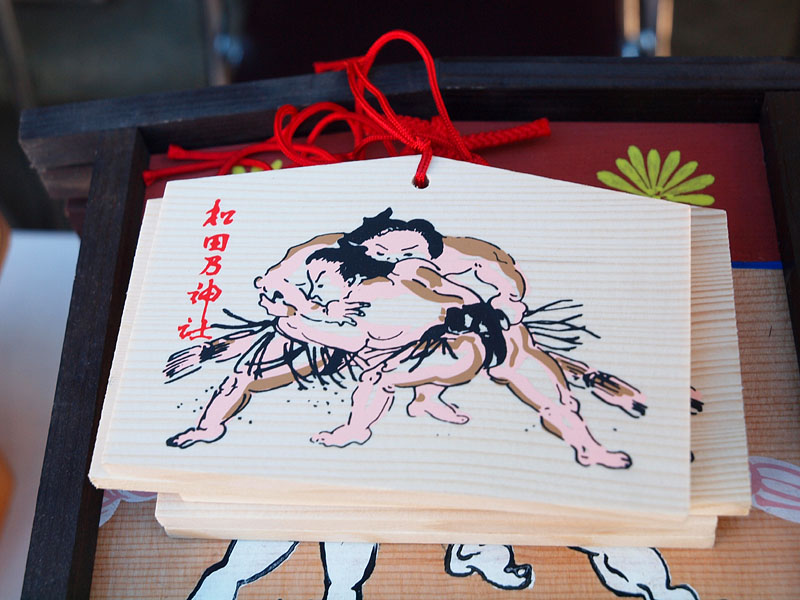 和田乃神社